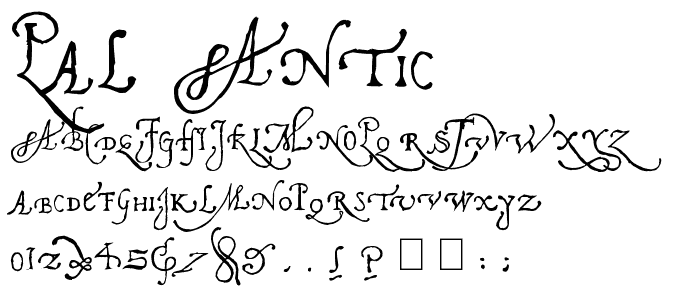 Pal Antic
ABCDEFGHIJKLMNOPQRSTUVWXYZ
ABCDEFGHIJKLMNOPQRSTUVWXYZ
0123456789 . . 1 P □ □ : ;